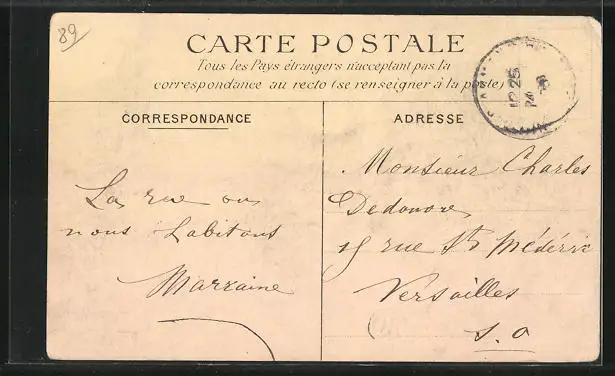 89
CARTE POSTALE
Tous les Pays étrangers n'acceptant pas la
correspondance au recto (se renseigner à la poste)
CORRESPONDANCE
ADRESSE
La rue ou
nous habitons
Marraine
Monsieur Charles
rue St Médéric
Versailles
S. O